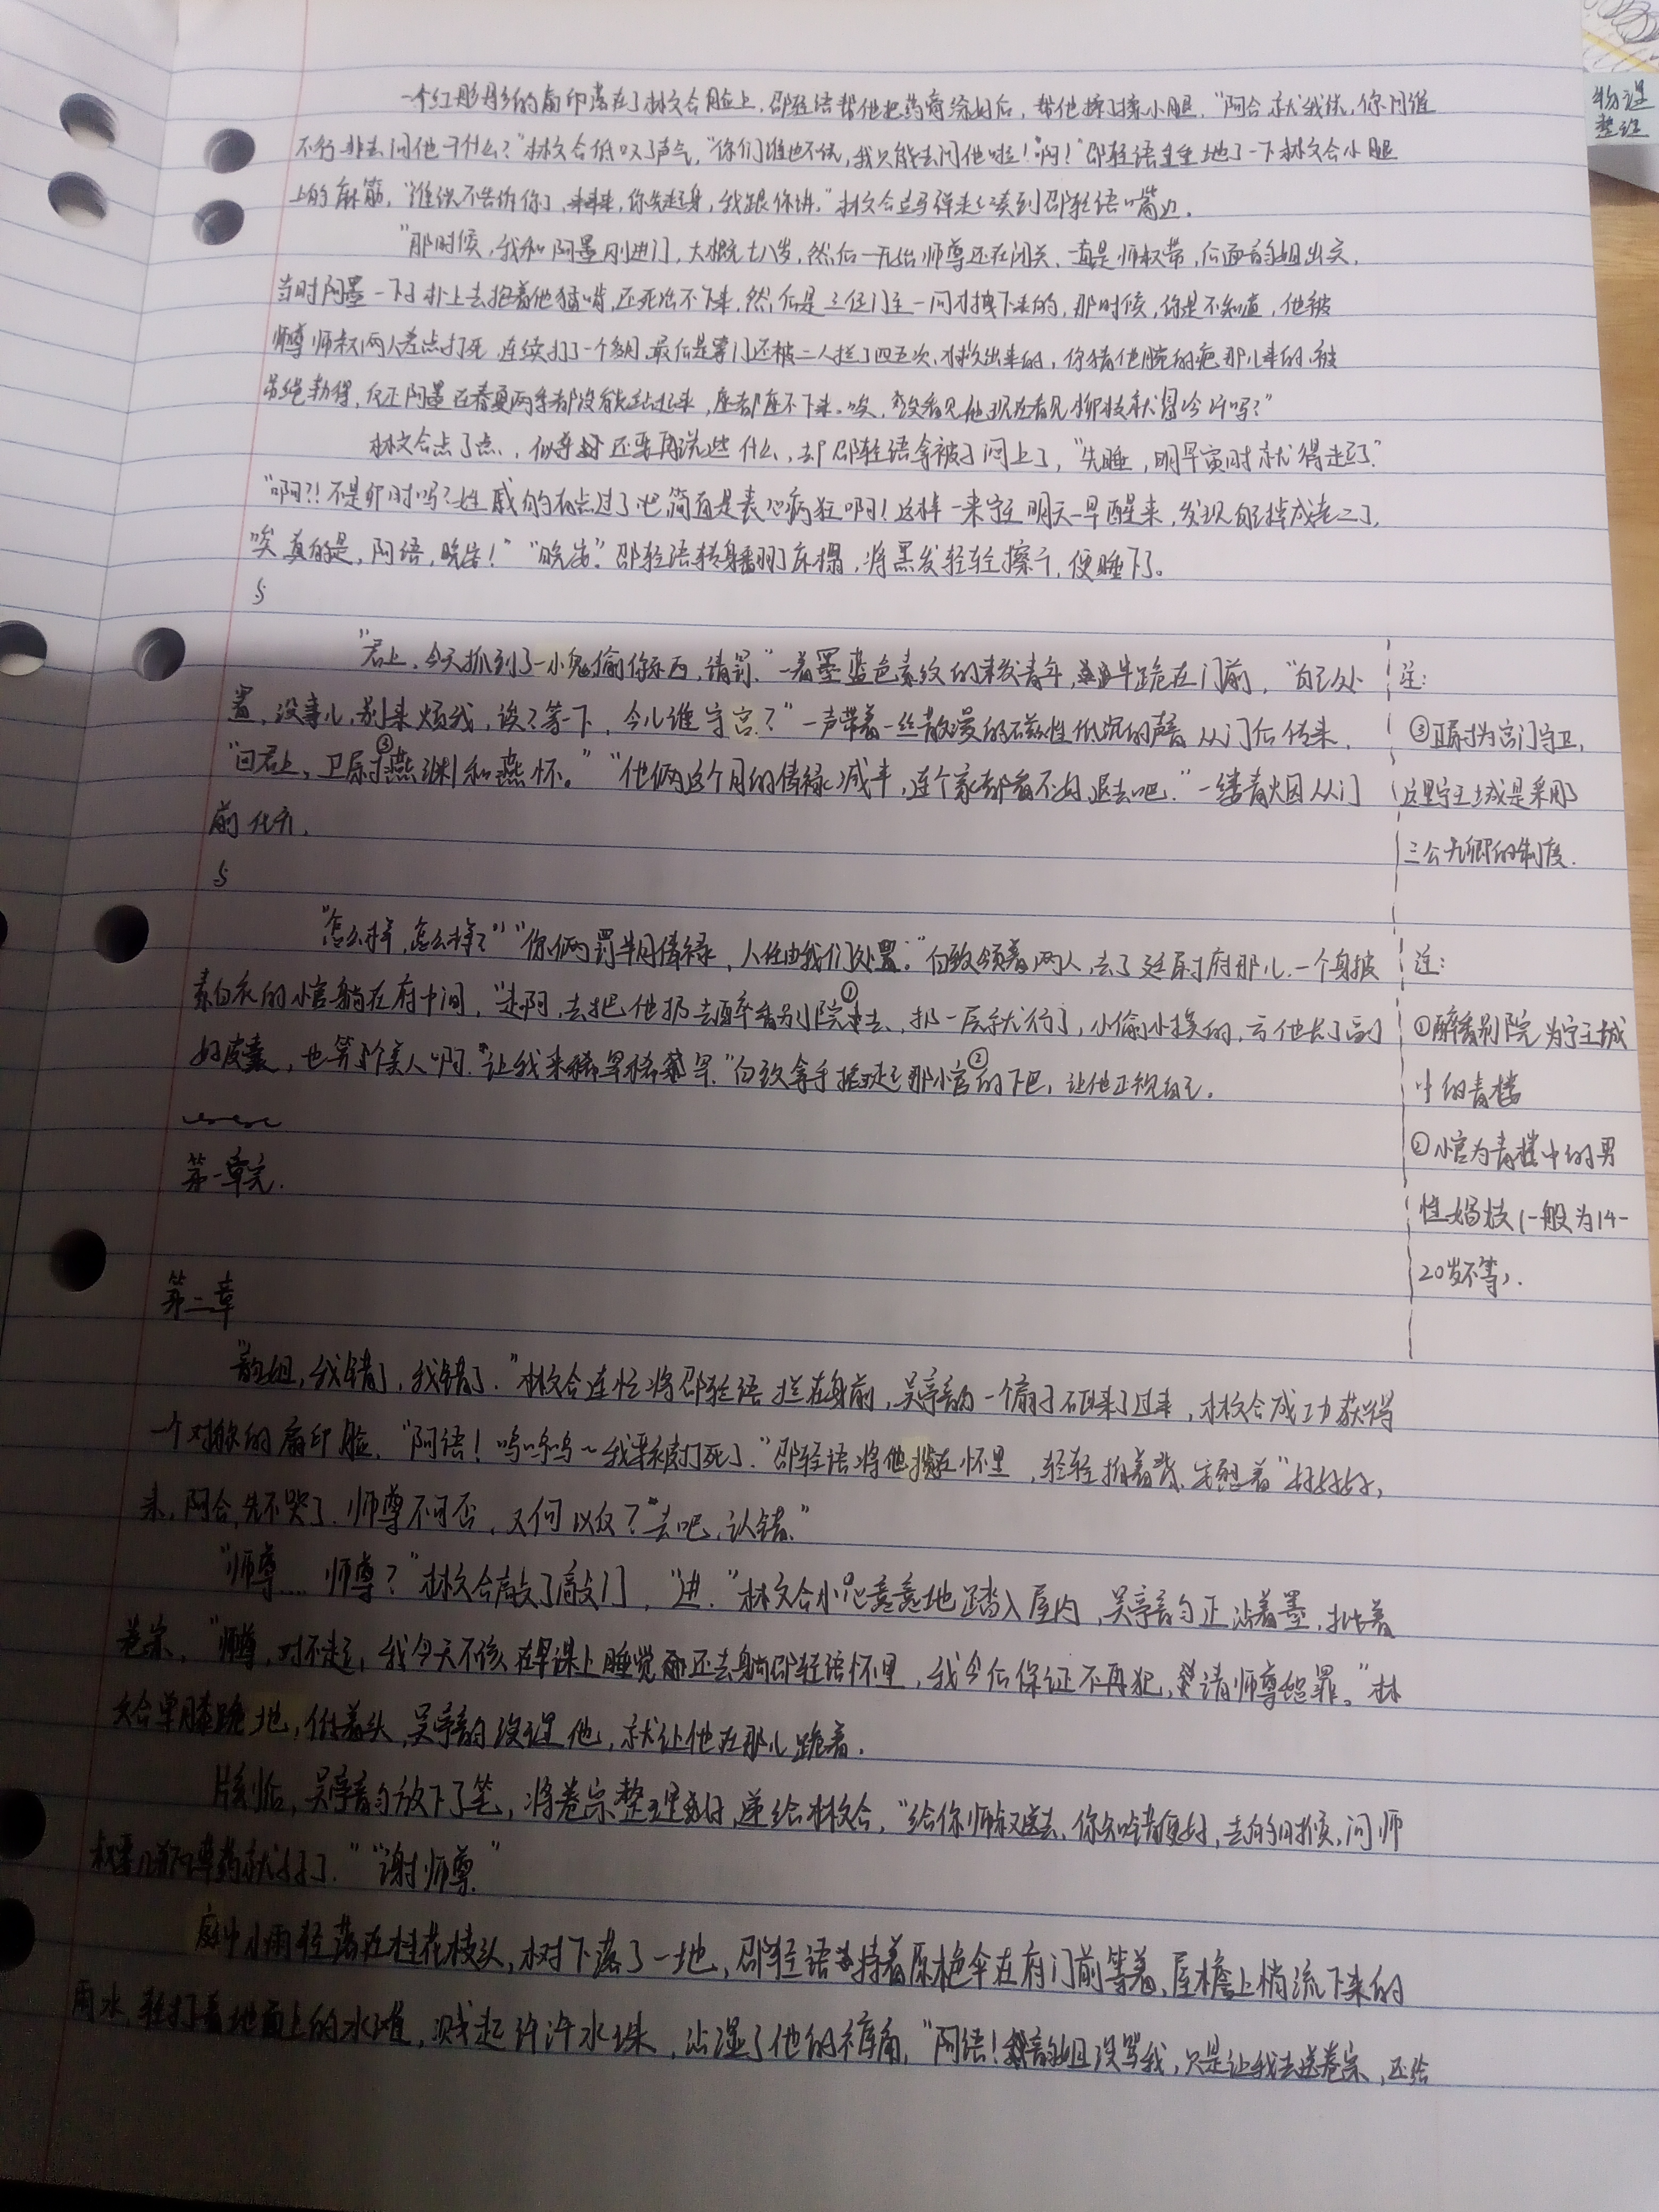 一个红彤彤的扇印落在了林文合脸上，邵轻语帮他把药膏涂好后，帮他揉了揉小腿，"阿合，就我俩，你问谁
不行，非去问他干什么？"林文合低叹了声气，"你们谁也不说，我只能去问他啦！啊！"邵轻语重重地了一下林文合小腿
上的麻筋，"谁说不告诉你了，来来来，你先起身，我跟你讲。"林文合立马弹起凑到邵轻语嘴边。
"那时候，我和阿墨刚进门，大概七八岁，然后一开始师尊还在闭关，一直是师叔带，后面韵姐出关，
当时阿墨一下子扑上去抱着他猛啃，还死活不下来，然后是三位门主一同才拽下来的，那时候，你是不知道，他被
师尊师叔两人差点打死，连续打了一个多月，最后是掌门还被二人拦了四五次，才救出来的，你猜他腕的疤那儿来的，被
吊绳勒得，反正阿墨在春夏两季都没能站起来，座都座不下来。唉，没看见他现在看见柳枝就冒冷汗吗？"
林文合点了点，似乎还要再说些什么，却邵轻语拿被子闷上了，"先睡，明早寅时就得走了。"
"啊？！不是卯时吗？姓戚的有点过了吧，简直是丧心病狂啊！这样一来宁王明天一早醒来，发现自己掉成老二了，
唉，真的是，阿语，晚安！""晚安。"邵轻语转身翻了床榻，将黑发轻轻擦干，便睡下了。
"君上，今天抓到了一小鬼偷你东西，请罚。"一着墨蓝色素纹的束发青年，半跪在门前，"自己处
置，没事儿，别来烦我，诶？等一下，今儿谁守宫？"一声带着一丝散漫的磁性低沉的声音从门后传来，
"回君上，卫尉③燕渊和燕怀。""他俩这个月的俸禄减半，连个家都看不好，退去吧。"一缕青烟从门
前化开，
注：
③卫尉为宫门守卫，
这里宁王城是采用
三公九卿的制度.
"怎么样，怎么样？""你俩罚半月俸禄，人任由我们处置。"白致领着两人，去了廷尉府那儿，一个身披
素白衣的小官躺在府中间，"走啊，去把他扔去醉香别院①去，扔一层就行了，小偷小摸的，亏他长了副
好皮囊，也算个美人啊。""让我来稀罕稀罕。"白致拿手抬起了那小官②的下巴，让他正视自己。
注：
①醉香别院为宁王城
中的青楼
②小官为青楼中的男
性娼妓（一般为14-
20岁不等）.
第一单完.
第二章
"韵姐，我错了，我错了."林文合连忙将邵轻语拦在身前，吴亭韵一个扇子砸来了过来，林文合成功获得
一个对称的扇印脸，"阿语！呜呜呜~我要被打死了."邵轻语将他揽在怀里，轻轻拍着背，安慰着"好好好，
来，阿合，先不哭了，师尊不可否，又何以及？去吧，认错。"
"师尊....师尊？"林文合敲了敲门，"进."林文合小心意意地踏入屋内，吴亭韵正沾着墨，批着
卷宗，"师尊，对不起，我今天不该在早课上睡觉还去躺邵轻语怀里，我今后保证不再犯，请师尊恕罪。"林
文合单膝跪地，低着头，吴亭韵没理他，就让他在那儿跪着.
片刻后，吴亭韵放下了笔，将卷宗整理好，递给林文合，"给你师叔送去，你知错便好，去的时候，问师
叔拿几副草药就好了.""谢师尊"
庭中小雨轻落在桂花枝头，树下落了一地，邵轻语持着原桅伞在府门前等着，屋檐上悄流下来的
雨水轻打着地面上的水滩，溅起许许水珠，沾湿了他的裤角，"阿语！韵姐没骂我，只是让我去送卷宗，还给
物理
整理